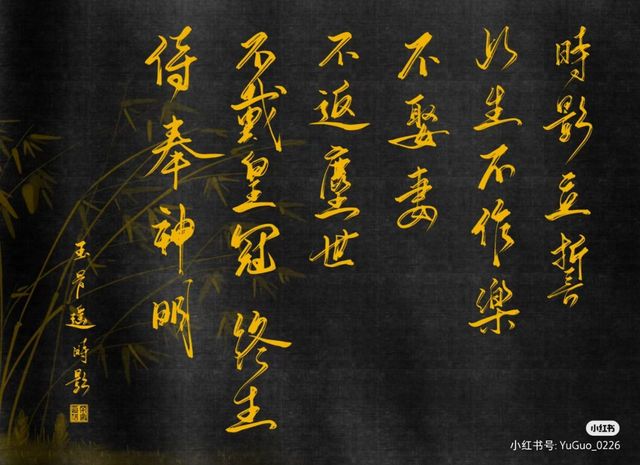 時影立誓
此生不作樂
不娶妻
不返塵世
不戴皇冠 終生
侍奉神明
玉骨遥 時影
小红书
小红书号: YuGuo_0226